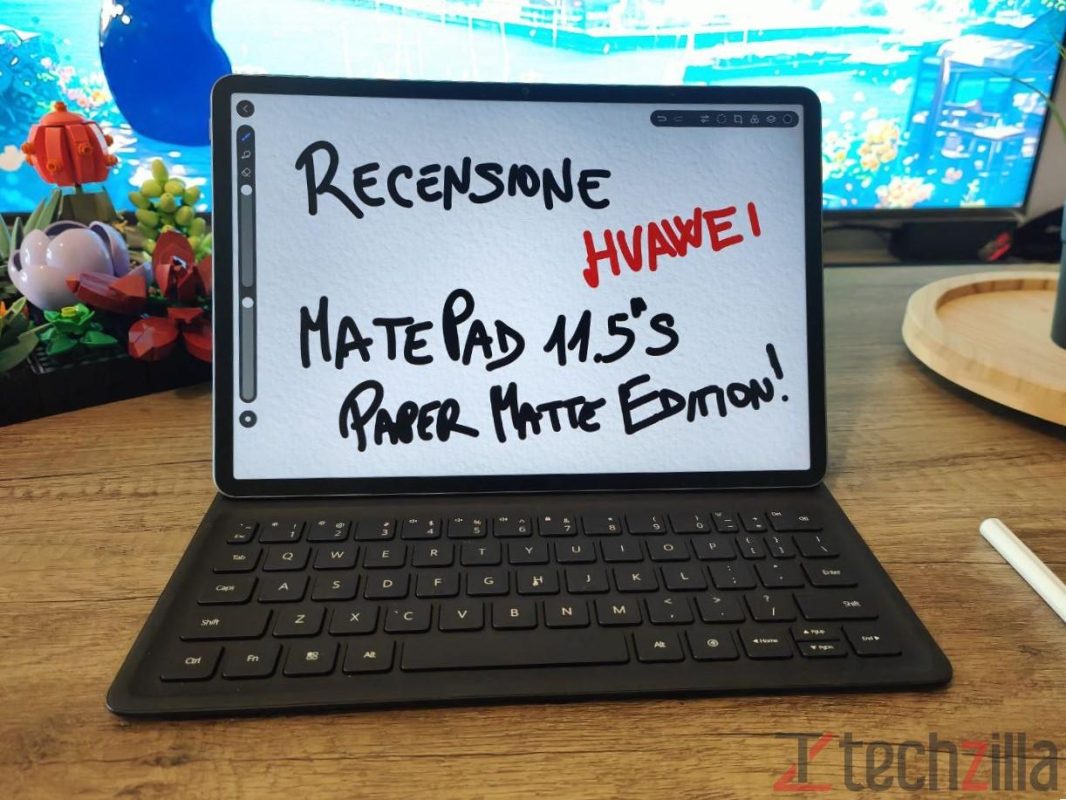 RECENSIONE
HUAWEI
MATEPAD 11.5"S
PAPER MATTE EDITION!
Esc 1 2 3 4 5 6 7 8 9 0 Del
Tab Q W E R T Y U I O P { [ } ] | \
Caps A S D F G H J K L : ; " ' Enter
Shift Z X C V B N M < , > . ? / Shift
Ctrl Fn Alt Alt ◄Home ▲PgUp ▼PgDn End►
techzilla